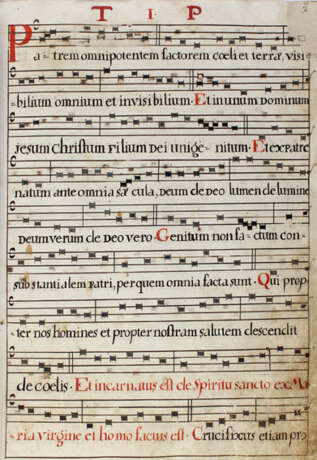 T I P
Patrem omnipotentem factorem cœli et terræ, visi
bilium omnium et invisibilium. Et in unum Dominum
Jesum Christum Filium Dei unigenitum. Et ex Patre
natum ante omnia sæcula, Deum de Deo lumen de lumine
Deum verum de Deo vero. Genitum non factum con
substantialem Patri, per quem omnia facta sunt. Qui prop
ter nos homines et propter nostram salutem descendit
de cœlis. Et incarnatus est de Spiritu sancto ex Ma
ria virgine et homo factus est. Crucifixus etiam pro